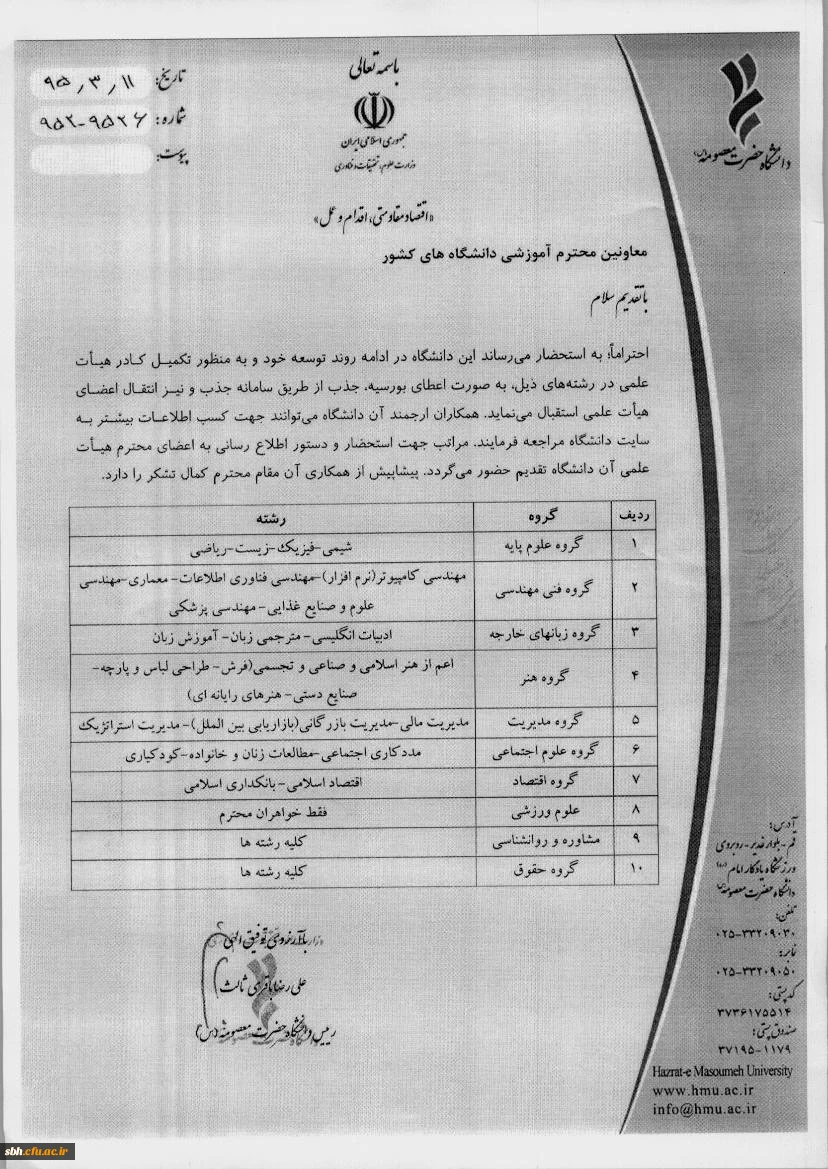 باسمه تعالی
جمهوری اسلامی ایران
وزارت علوم، تحقیقات و فناوری
تاریخ: ۹۵٫۳٫۱۱
شماره: ۹۵۲-۹۵۲۶
پیوست:
دانشگاه حضرت معصومه(س)
«اقتصاد مقاومتی، اقدام و عمل»
معاونین محترم آموزشی دانشگاه های کشور
با تقدیم سلام
احتراماً؛ به استحضار می‌رساند این دانشگاه در ادامه روند توسعه خود و به منظور تکمیل کادر هیأت
علمی در رشته‌های ذیل، به صورت اعطای بورسیه، جذب از طریق سامانه جذب و نیز انتقال اعضای
هیأت علمی استقبال می‌نماید. همکاران ارجمند آن دانشگاه می‌توانند جهت کسب اطلاعات بیشتر به
سایت دانشگاه مراجعه فرمایند. مراتب جهت استحضار و دستور اطلاع رسانی به اعضای محترم هیأت
علمی آن دانشگاه تقدیم حضور می‌گردد. پیشاپیش از همکاری آن مقام محترم کمال تشکر را دارد.
ردیف گروه رشته
۱ گروه علوم پایه شیمی-فیزیک-زیست-ریاضی
۲ گروه فنی مهندسی مهندسی کامپیوتر(نرم افزار)-مهندسی فناوری اطلاعات- معماری-مهندسی
علوم و صنایع غذایی- مهندسی پزشکی
۳ گروه زبانهای خارجه ادبیات انگلیسی- مترجمی زبان- آموزش زبان
۴ گروه هنر اعم از هنر اسلامی و صناعی و تجسمی(فرش- طراحی لباس و پارچه-
صنایع دستی- هنرهای رایانه ای)
۵ گروه مدیریت مدیریت مالی-مدیریت بازرگانی(بازاریابی بین الملل)-مدیریت استراتژیک
۶ گروه علوم اجتماعی مددکاری اجتماعی-مطالعات زنان و خانواده-کودکیاری
۷ گروه اقتصاد اقتصاد اسلامی- بانکداری اسلامی
۸ علوم ورزشی فقط خواهران محترم
۹ مشاوره و روانشناسی کلیه رشته ها
۱۰ گروه حقوق کلیه رشته ها
با آرزوی توفیق الهی
علی رضا باقری ثالث
رییس دانشگاه حضرت معصومه(س)
آدرس:
قم- بلوار غدیر- روبروی
ورزشگاه یادگار امام(ره)
دانشگاه حضرت معصومه(س)
تلفن:
۰۲۵-۳۳۲۰۹۰۳۰
نمابر:
۰۲۵-۳۳۲۰۹۰۵۰
کد پستی:
۳۷۳۶۱۷۵۵۱۴
صندوق پستی:
۳۷۱۹۵-۱۱۷۹
Hazrat-e Masoumeh University
www.hmu.ac.ir
info@hmu.ac.ir
sbh.cfu.ac.ir